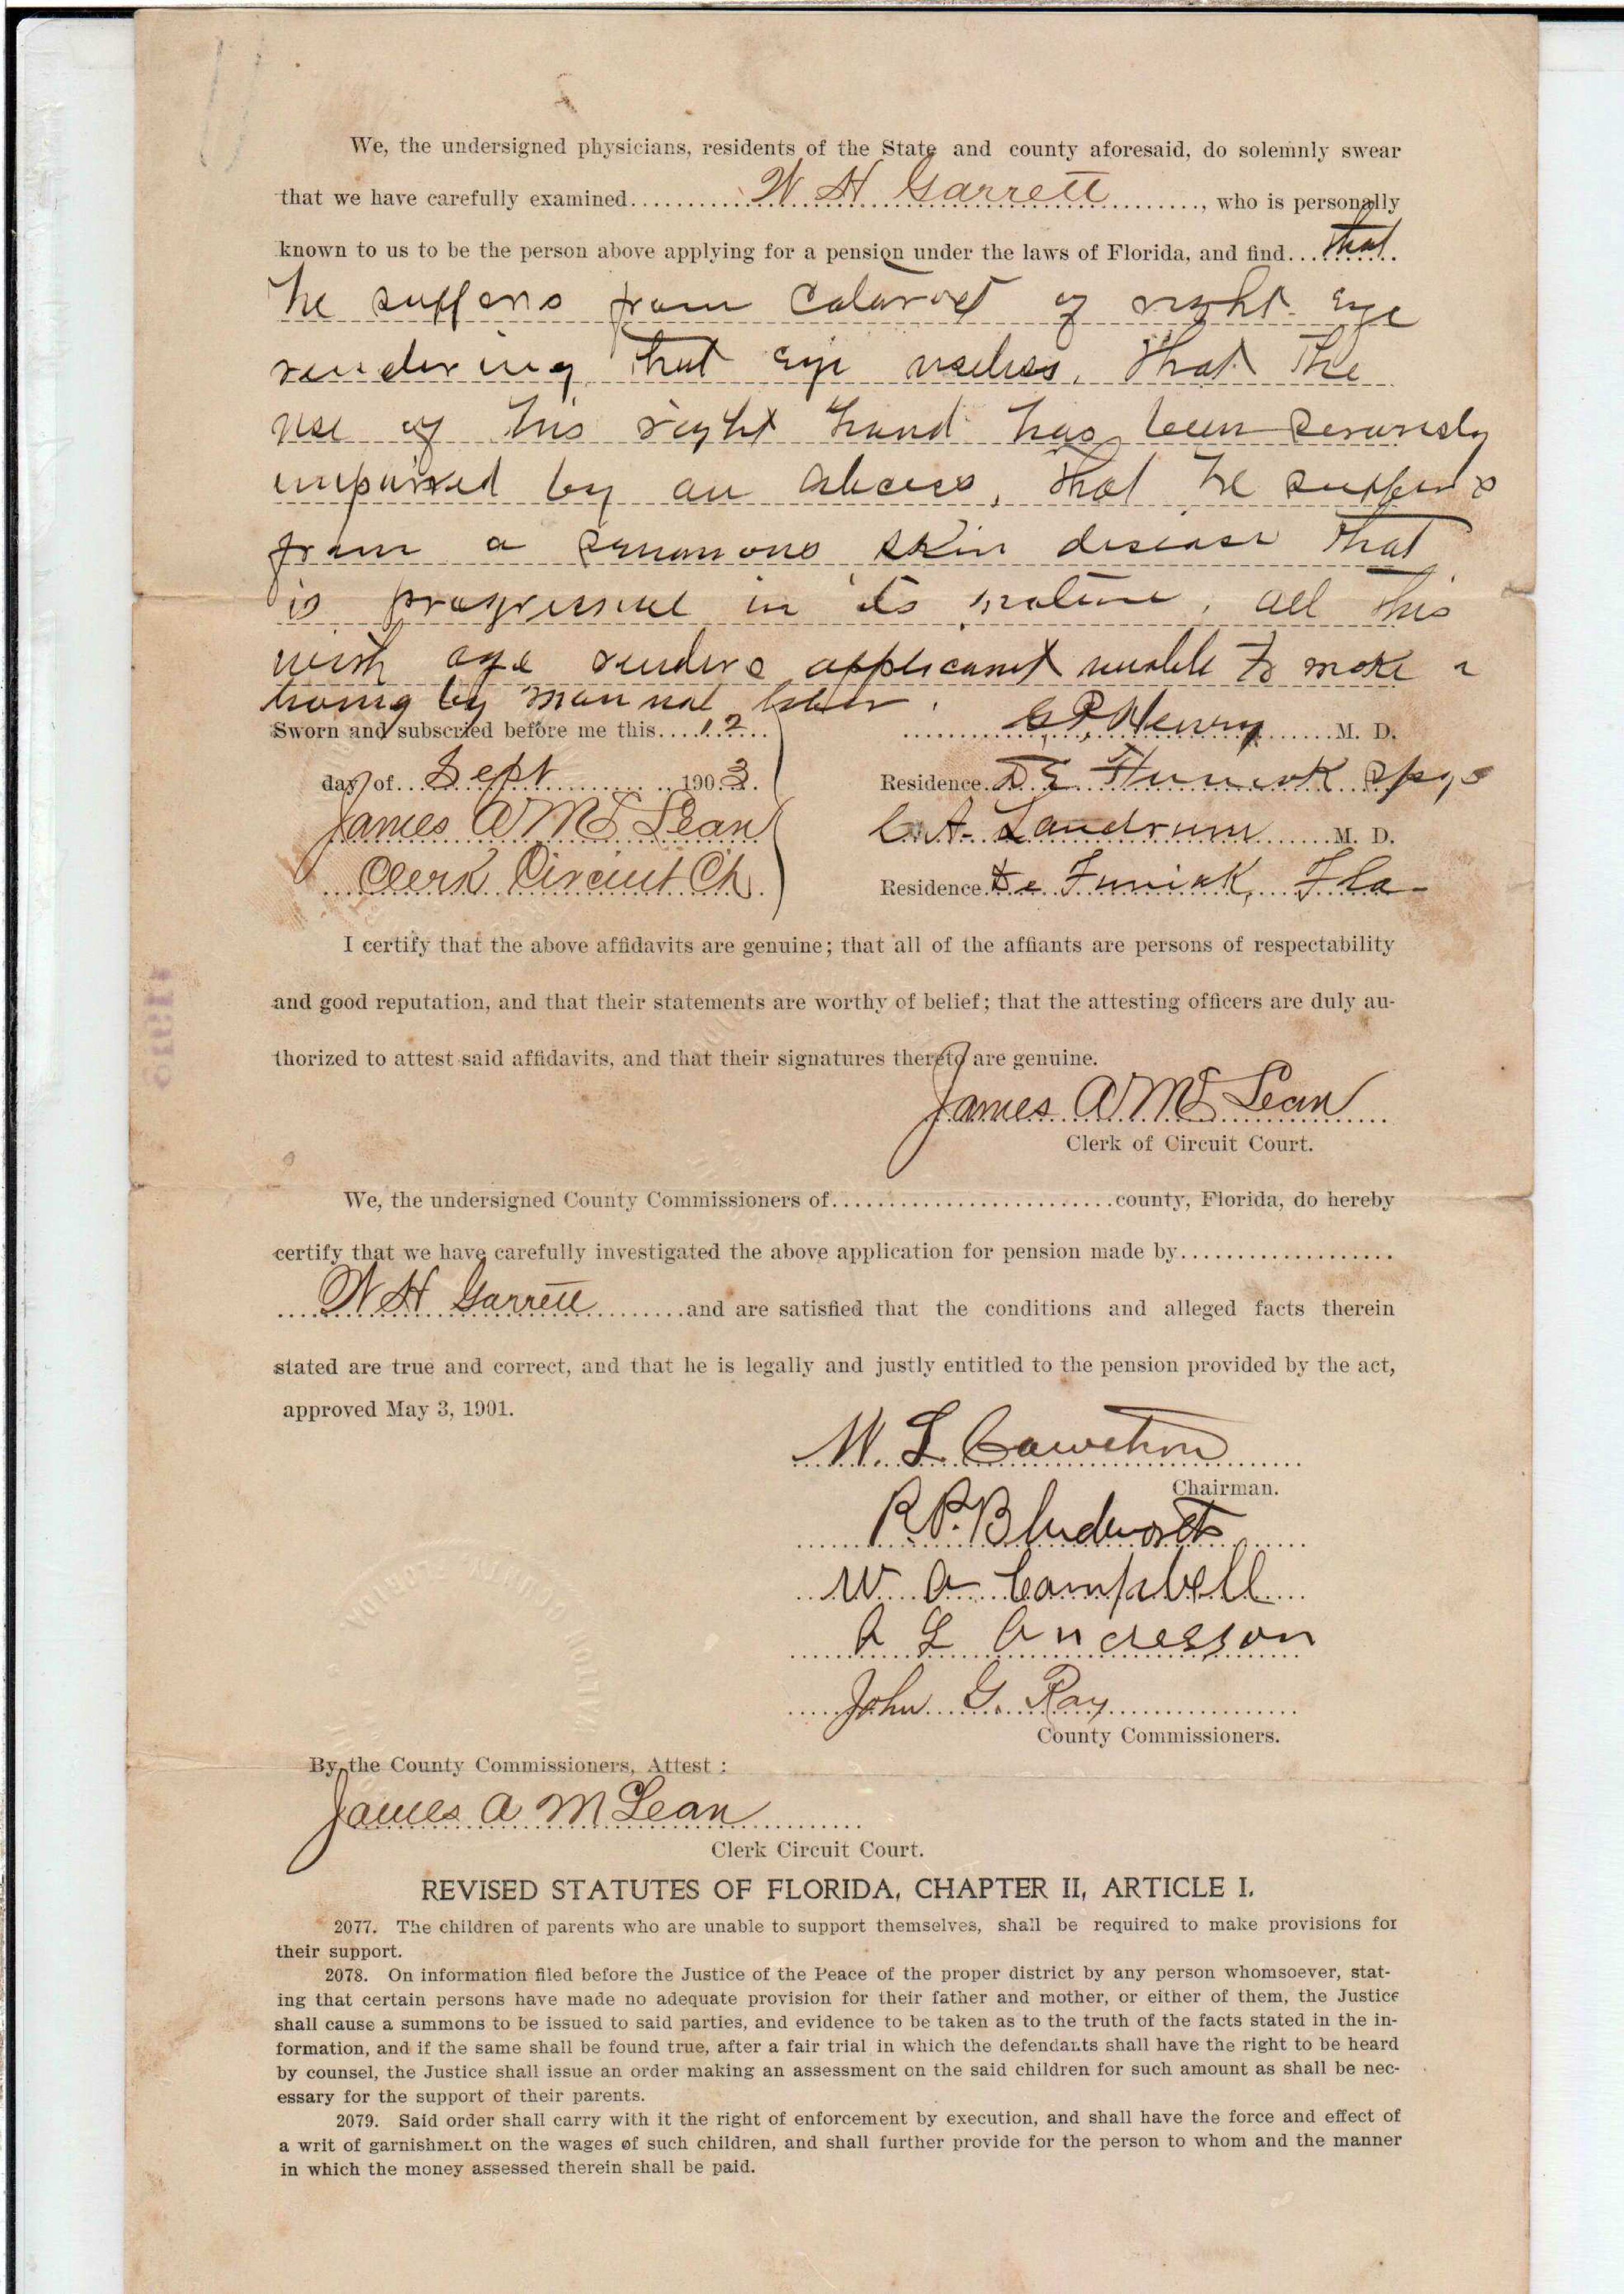 We, the undersigned physicians, residents of the State and county aforesaid, do solemnly swear
that we have carefully examined W H Garrett, who is personally
known to us to be the person above applying for a pension under the laws of Florida, and find that
he suffers from Cataract of right Eye
rendering that Eye useless, that the
use of his right hand has been seriously
impaired by an abcess, that he suffers
from a skin disease that
is progressive in its nature, all this
with age renders applicant unable to make a
living by manual labor.
Sworn and subscried before me this 12
day of Sept 1903.
James A McLean
Clerk Circuit Ct
Henry M. D.
Residence De Funiak Spgs
C. A. Landrum M. D.
Residence De Funiak, Fla
I certify that the above affidavits are genuine; that all of the affiants are persons of respectability
and good reputation, and that their statements are worthy of belief; that the attesting officers are duly au-
thorized to attest said affidavits, and that their signatures thereto are genuine.
James A McLean
Clerk of Circuit Court.
We, the undersigned County Commissioners of county, Florida, do hereby
certify that we have carefully investigated the above application for pension made by
W H Garrett and are satisfied that the conditions and alleged facts therein
stated are true and correct, and that he is legally and justly entitled to the pension provided by the act,
approved May 3, 1901.
W. L. Cawthon
Chairman.
R. P. Bludworth
W. A Campbell
L Anderson
John G. Ray
County Commissioners.
By the County Commissioners, Attest:
James A McLean
Clerk Circuit Court.
REVISED STATUTES OF FLORIDA, CHAPTER II, ARTICLE I.
2077. The children of parents who are unable to support themselves, shall be required to make provisions for
their support.
2078. On information filed before the Justice of the Peace of the proper district by any person whomsoever, stat-
ing that certain persons have made no adequate provision for their father and mother, or either of them, the Justice
shall cause a summons to be issued to said parties, and evidence to be taken as to the truth of the facts stated in the in-
formation, and if the same shall be found true, after a fair trial in which the defendants shall have the right to be heard
by counsel, the Justice shall issue an order making an assessment on the said children for such amount as shall be nec-
essary for the support of their parents.
2079. Said order shall carry with it the right of enforcement by execution, and shall have the force and effect of
a writ of garnishment on the wages of such children, and shall further provide for the person to whom and the manner
in which the money assessed therein shall be paid.